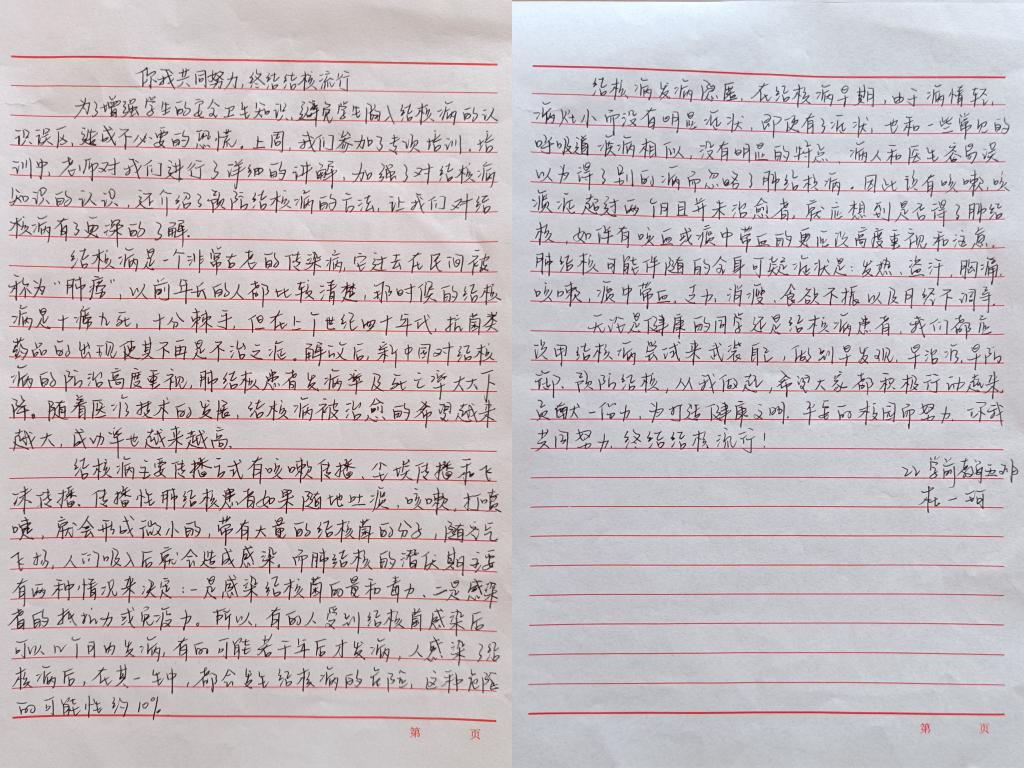 你我共同努力,终结结核流行
为了增强学生的安全卫生知识,避免学生陷入结核病的认
识误区,造成不必要的恐慌。上周,我们参加了专项培训,培
训中,老师对我们进行了详细的讲解,加强了对结核病
知识的认识,还介绍了预防结核病的方法,让我们对结
核病有了更深的了解。
结核病是一个非常古老的传染病,它过去在民间被
称为“肺痨”,以前年长的人都比较清楚,那时候的结核
病是十痨九死,十分棘手,但在上个世纪四十年代,抗菌类
药品的出现使其不再是不治之症。解放后,新中国对结核
病的防治高度重视,肺结核患者发病率及死亡率大大下
降。随着医疗技术的发展,结核病被治愈的希望越来
越大,成功率也越来越高。
结核病主要传播方式有咳嗽传播、尘埃传播和飞
沫传播。传播性肺结核患者如果随地吐痰,咳嗽,打喷
嚏,就会形成微小的,带有大量的结核菌的分子,随空气
飞扬,人们吸入后就会造成感染。而肺结核的潜伏期主要
有两种情况来决定:一是感染结核菌的量和毒力,二是感染
者的抵抗力或免疫力。所以,有的人受到结核菌感染后
可以几个月内发病,有的可能若干年后才发病,人感染了结
核病后,在其一生中,都会发生结核病的危险,这种危险
的可能性约10%
结核病发病隐匿,在结核病早期,由于病情轻,
病灶小而没有明显症状,即便有了症状,也和一些常见的
呼吸道疾病相似,没有明显的特点,病人和医生容易误
以为得了别的病而忽略了肺结核病。因此没有咳嗽,咳
痰症超过两个月且年未治愈者,就应想到是否得了肺结
核,如伴有咳血或痰中带血的更应该高度重视和注意,
肺结核可能伴随的全身可疑症状是:发热,盗汗,胸痛,
咳嗽,痰中带血,乏力,消瘦,食欲不振以及月经不调等
无论是健康的同学还是结核病患者,我们都应
该用结核病尝试来武装自己,做到早发现,早治疗,早防
御。预防结核,从我做起,希望大家都积极行动起来,
贡献一份力,为打造健康文明,平安的校园而努力,你我
共同努力,终结结核流行!
22学前教育五班
杜一珂
第 页
第 页